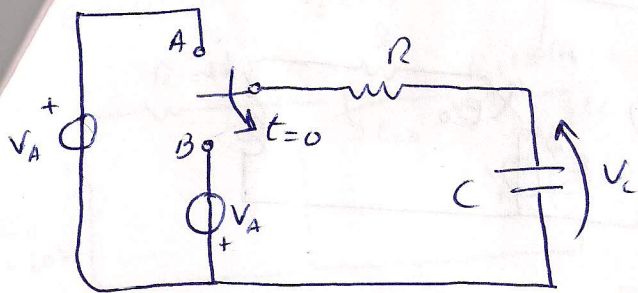 A
R
+
V_A
B
t=0
V_A
+
C
V_c